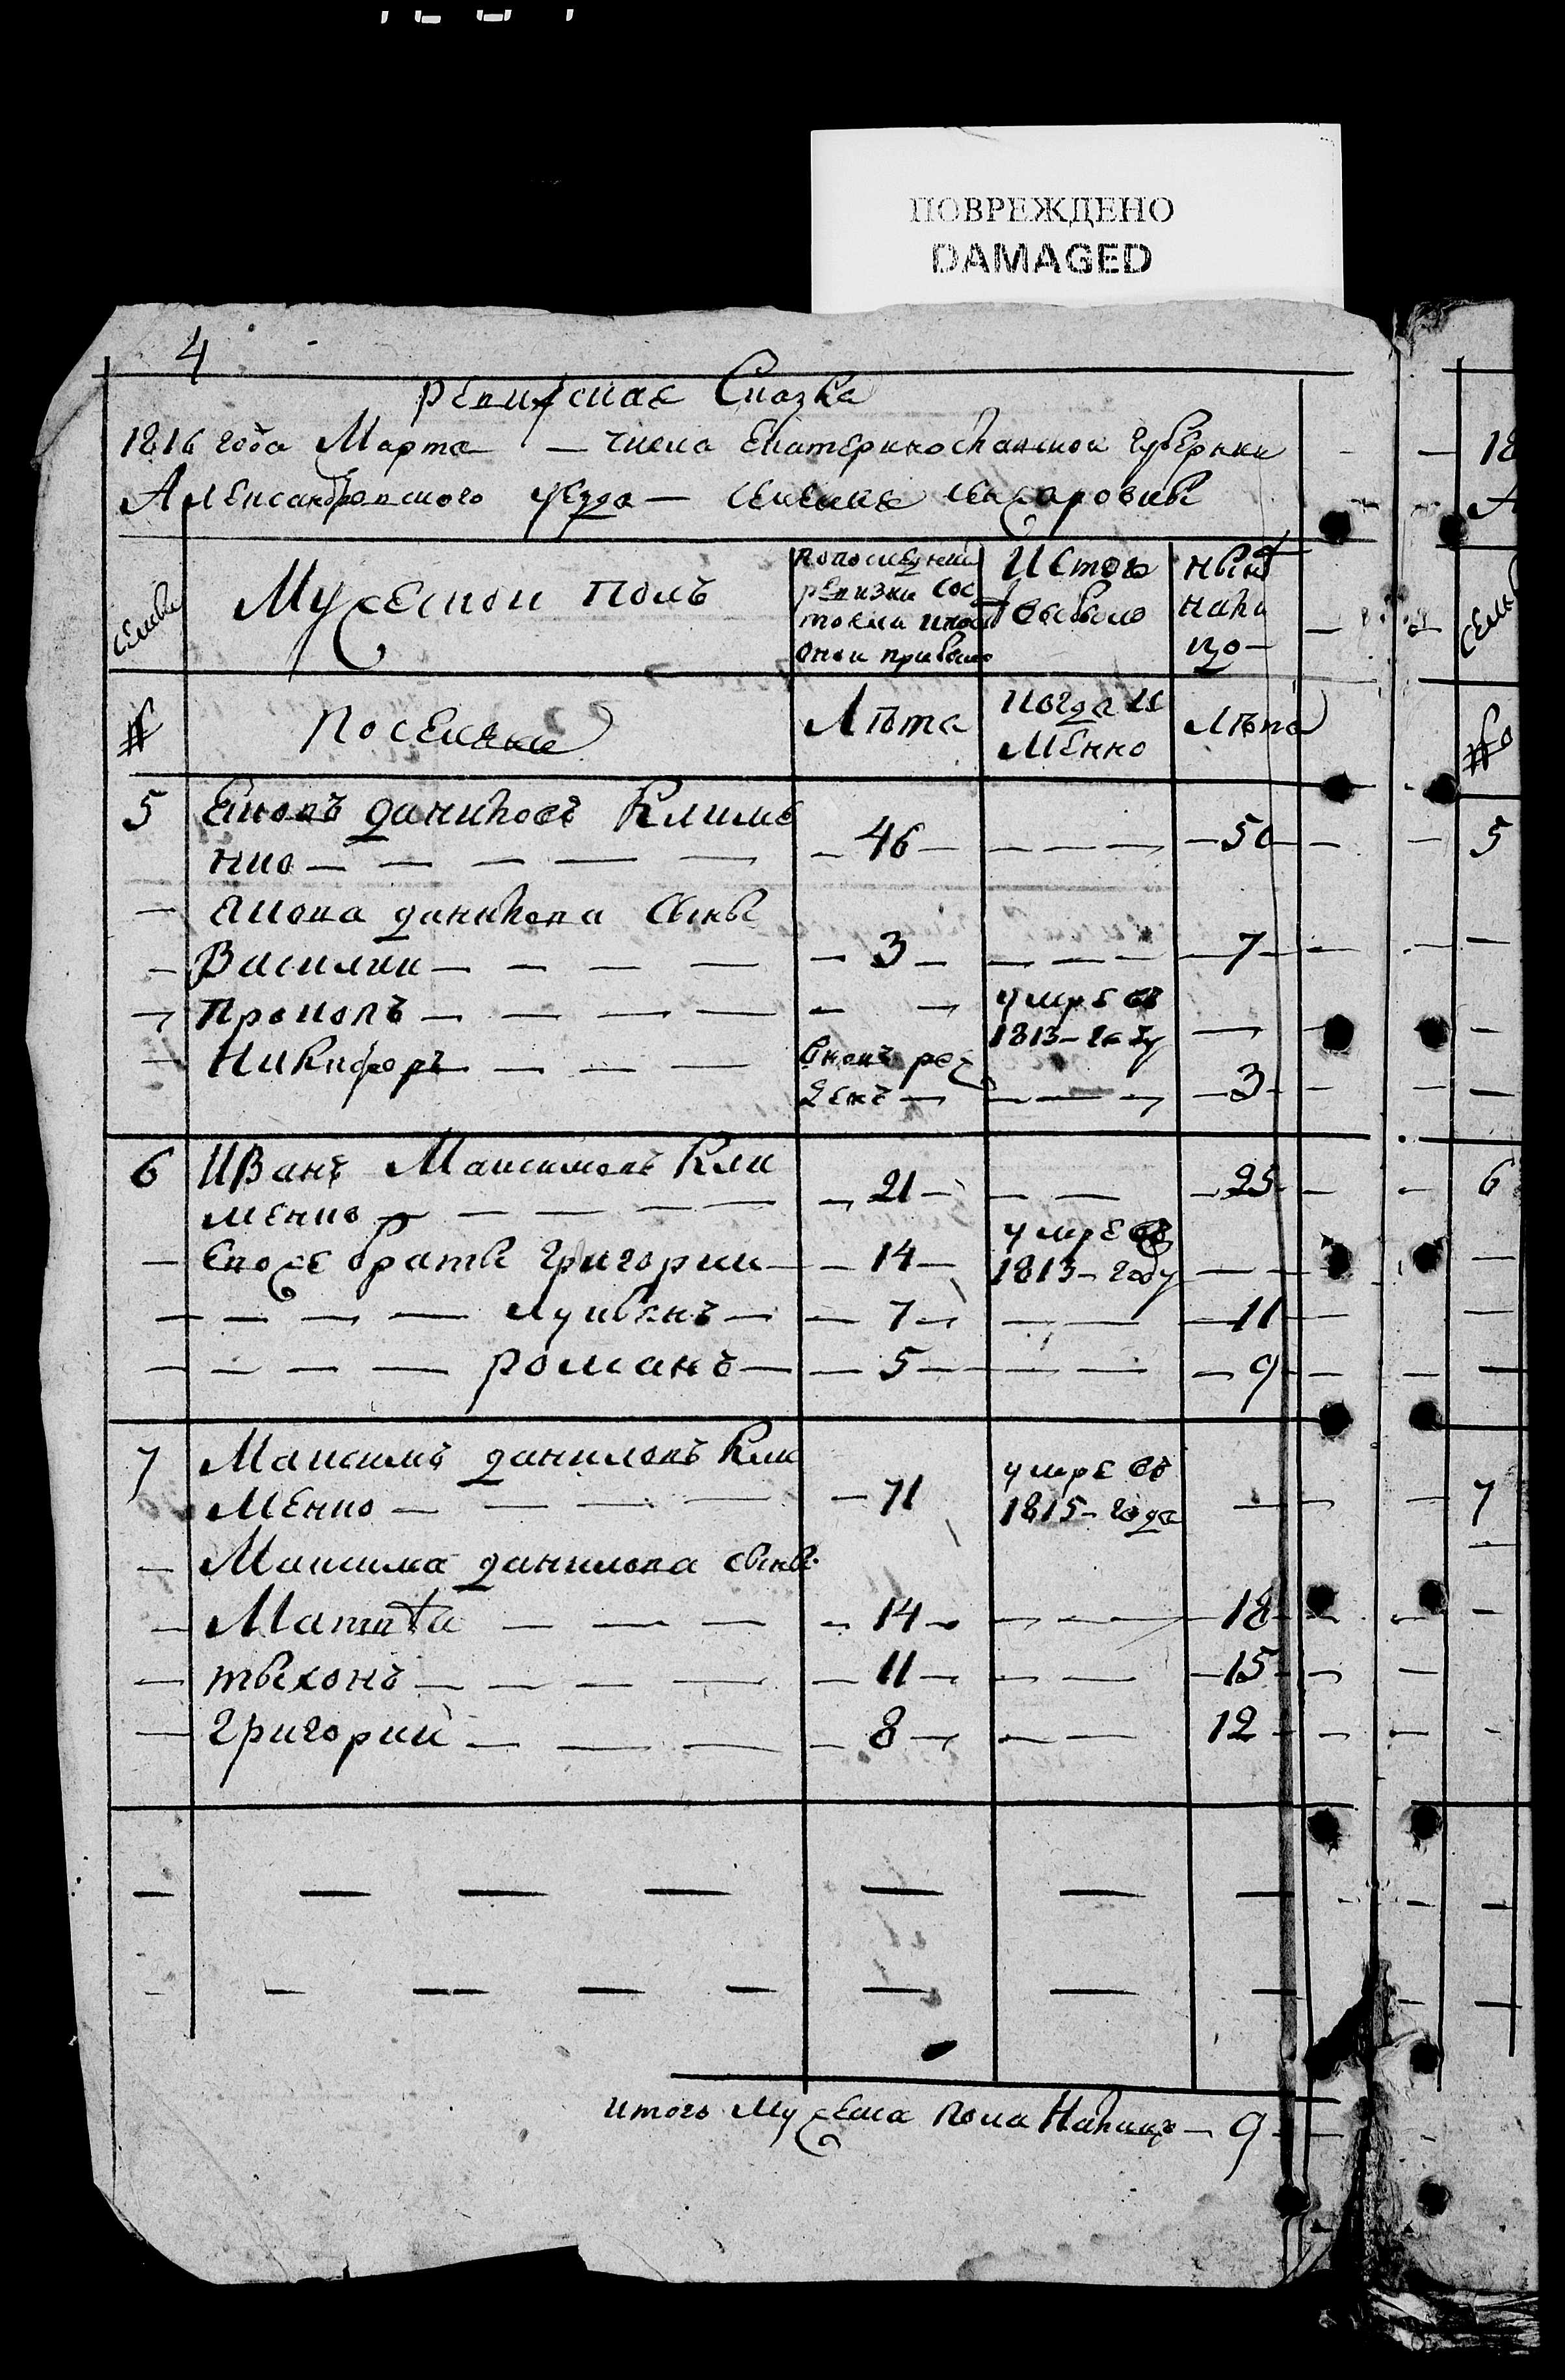 ПОВРЕЖДЕНО
DAMAGED
4
Ревижская Сказка
1816 года Марта — числа Екатеринославской губернии
Александровского уезда — селения
семьи
Мужеской полъ
по последней
ревизии сос
тояло и после
оной прибыло
Исътого
выбыло
нынѣ
нали
цо —
№
Поселяне
Лѣта
когда и
менно
Лѣта
5 Яковъ даниловъ Климе
нко — 46 — — — 50
Якова данилова сыны
Василий — 3 — — 7
Прокопъ — — умре въ
1813 — году —
Никифоръ — вновь рож
денъ — — 3
6 Иванъ Максимовъ Кли
менко — 21 — — 25
Евоже браты григорий — 14 — умре въ
1813 — году —
Лукьянъ — 7 — — 11
романъ — 5 — — 9
7 Максимъ даниловъ Кли
менко — 71 умре въ
1815 — года —
Максима данилова сыны
Матвѣй — 14 — — 18
тыхонъ — 11 — — 15
григорий — 8 — — 12
итого мужеска пола Налицо — 9
18
А
семьи
№
5
6
7